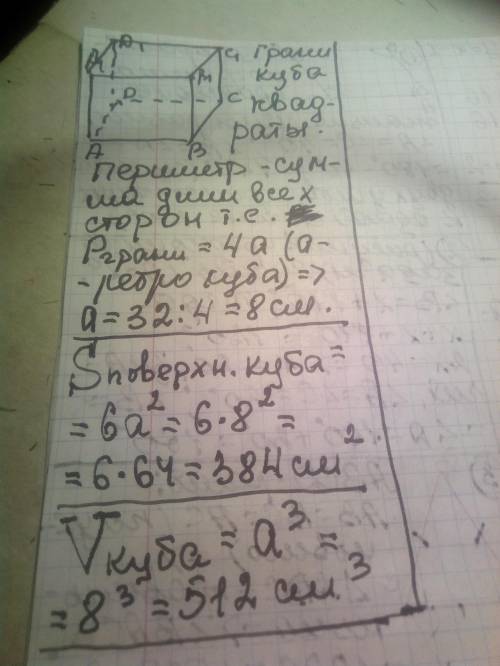 D₁
A₁
C₁
M
D
C
A
B
Грани
куба
квад-
раты.
Периметр - сум-
ма длин всех
сторон т.е.
Pграни = 4a (a-
-ребро куба) =>
a = 32 : 4 = 8 см.
Sповерхн. куба =
= 6a² = 6·8² =
= 6·64 = 384 см².
Vкуба = a³ =
= 8³ = 512 см³